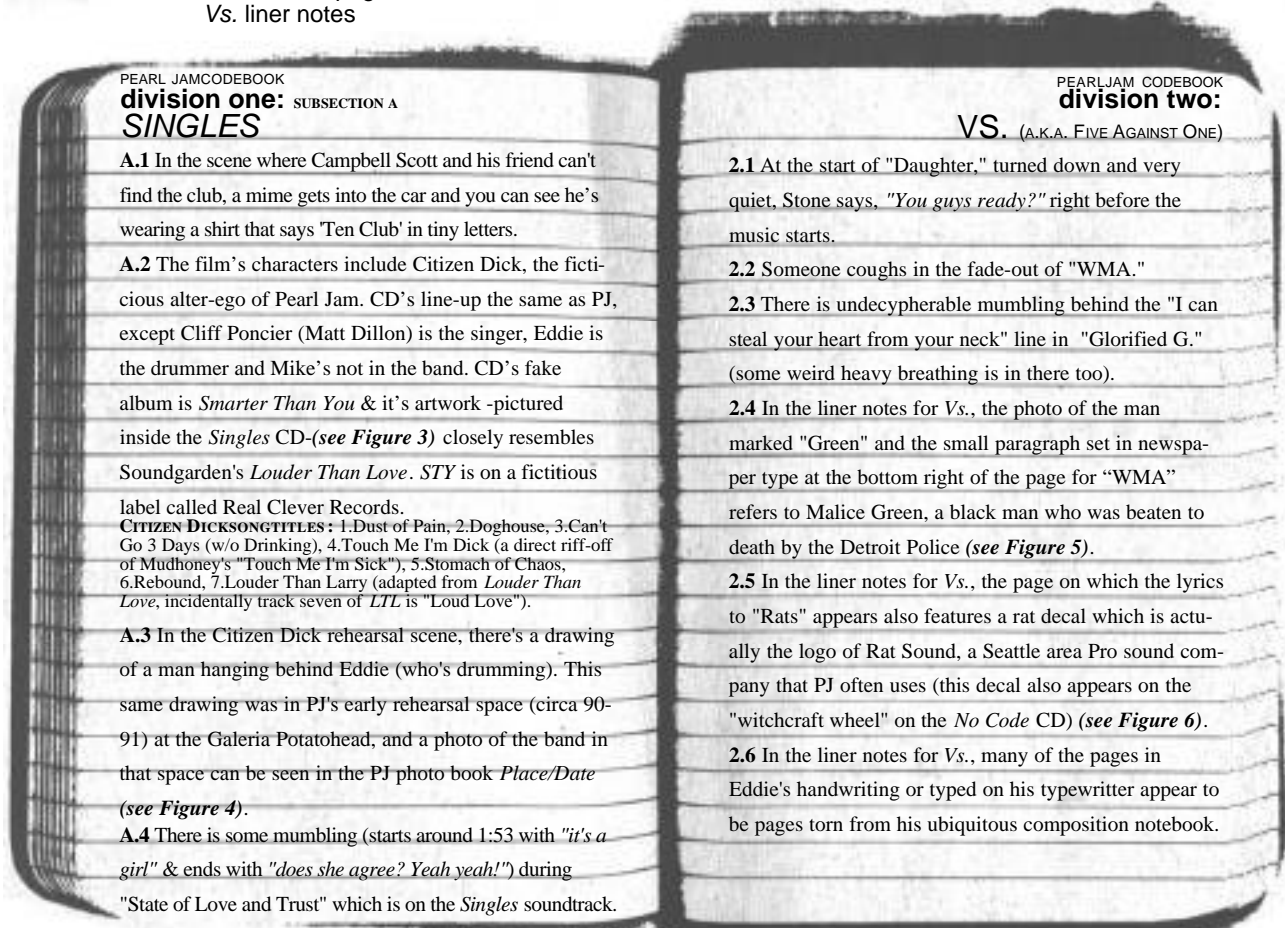 Vs. liner notes
PEARL JAMCODEBOOK
division one: SUBSECTION A
SINGLES
A.1 In the scene where Campbell Scott and his friend can't
find the club, a mime gets into the car and you can see he's
wearing a shirt that says 'Ten Club' in tiny letters.
A.2 The film's characters include Citizen Dick, the ficti-
cious alter-ego of Pearl Jam. CD's line-up the same as PJ,
except Cliff Poncier (Matt Dillon) is the singer, Eddie is
the drummer and Mike's not in the band. CD's fake
album is Smarter Than You & it's artwork -pictured
inside the Singles CD-(see Figure 3) closely resembles
Soundgarden's Louder Than Love. STY is on a fictitious
label called Real Clever Records.
CITIZEN DICKSONGTITLES: 1.Dust of Pain, 2.Doghouse, 3.Can't
Go 3 Days (w/o Drinking), 4.Touch Me I'm Dick (a direct riff-off
of Mudhoney's "Touch Me I'm Sick"), 5.Stomach of Chaos,
6.Rebound, 7.Louder Than Larry (adapted from Louder Than
Love, incidentally track seven of LTL is "Loud Love").
A.3 In the Citizen Dick rehearsal scene, there's a drawing
of a man hanging behind Eddie (who's drumming). This
same drawing was in PJ's early rehearsal space (circa 90-
91) at the Galeria Potatohead, and a photo of the band in
that space can be seen in the PJ photo book Place/Date
(see Figure 4).
A.4 There is some mumbling (starts around 1:53 with "it's a
girl" & ends with "does she agree? Yeah yeah!") during
"State of Love and Trust" which is on the Singles soundtrack.
PEARLJAM CODEBOOK
division two:
VS. (A.K.A. FIVE AGAINST ONE)
2.1 At the start of "Daughter," turned down and very
quiet, Stone says, "You guys ready?" right before the
music starts.
2.2 Someone coughs in the fade-out of "WMA."
2.3 There is undecypherable mumbling behind the "I can
steal your heart from your neck" line in "Glorified G."
(some weird heavy breathing is in there too).
2.4 In the liner notes for Vs., the photo of the man
marked "Green" and the small paragraph set in newspa-
per type at the bottom right of the page for “WMA”
refers to Malice Green, a black man who was beaten to
death by the Detroit Police (see Figure 5).
2.5 In the liner notes for Vs., the page on which the lyrics
to "Rats" appears also features a rat decal which is actu-
ally the logo of Rat Sound, a Seattle area Pro sound com-
pany that PJ often uses (this decal also appears on the
"witchcraft wheel" on the No Code CD) (see Figure 6).
2.6 In the liner notes for Vs., many of the pages in
Eddie's handwriting or typed on his typewritter appear to
be pages torn from his ubiquitous composition notebook.